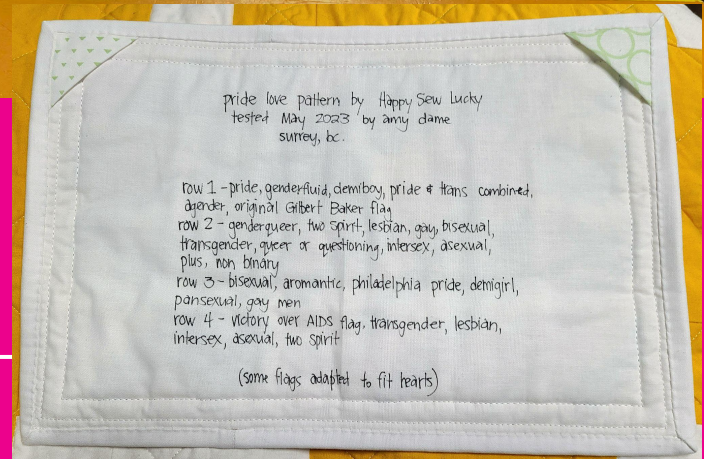 pride love pattern by Happy Sew Lucky
tested May 2023 by amy dame
surrey, bc.
row 1 - pride, genderfluid, demiboy, pride & trans combined,
agender, original Gilbert Baker flag
row 2 - genderqueer, two spirit, lesbian, gay, bisexual,
transgender, queer or questioning, intersex, asexual,
plus, non binary
row 3 - bisexual, aromantic, philadelphia pride, demigirl,
pansexual, gay men
row 4 - victory over AIDS flag, transgender, lesbian,
intersex, asexual, two spirit
(some flags adapted to fit hearts)